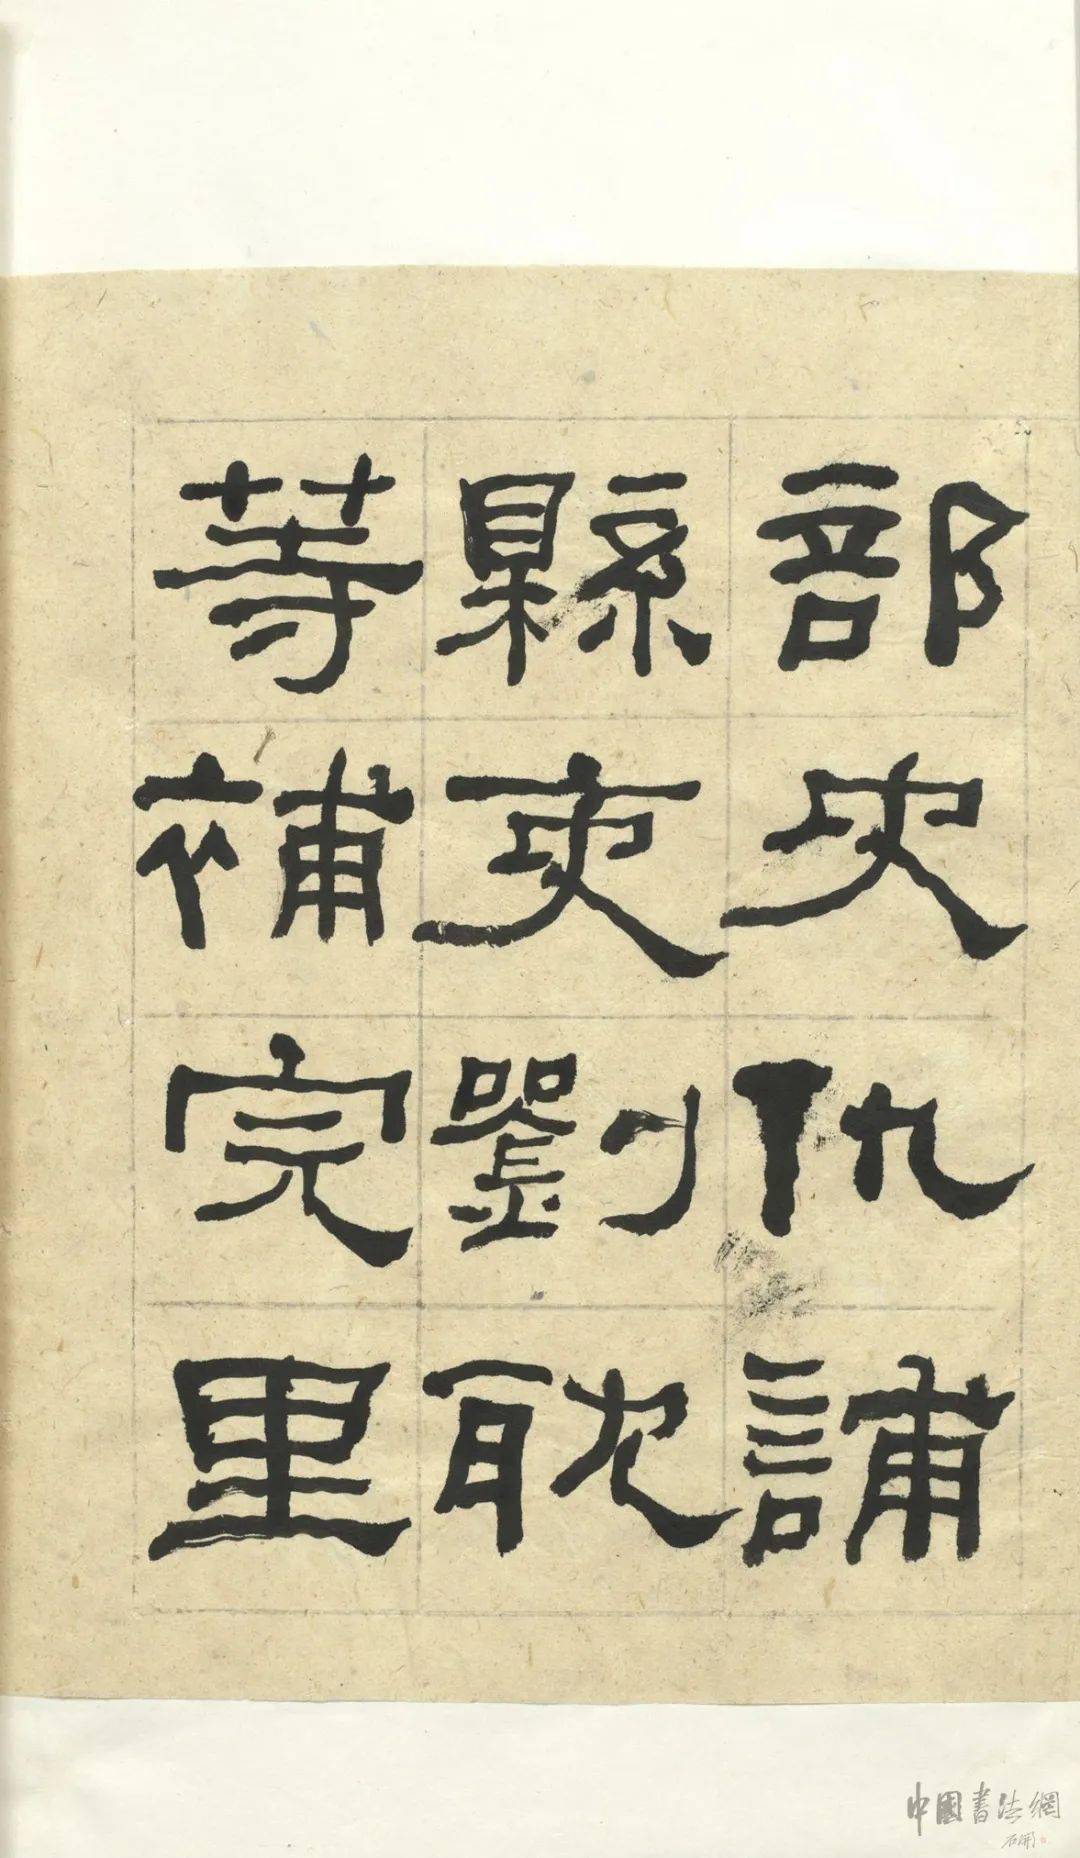 部史仇誧
縣吏劉耽
等補完里
中國書法網